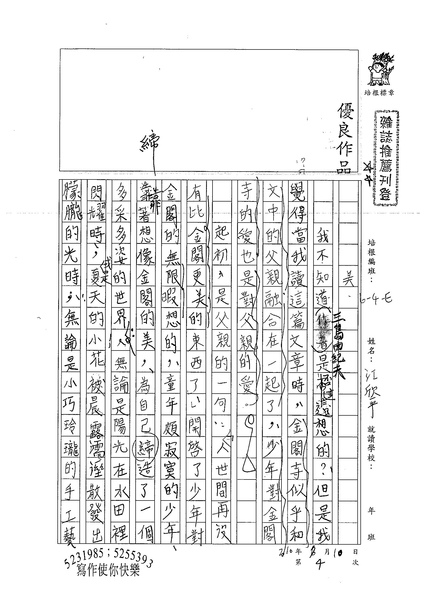 培根標章
雜誌推薦刊登
優良作品
培根編班：6-4-E
姓名：江欣平
就讀學校：
年 班
美
我不知道三島由紀夫是怎麼想的？但是我
覺得當我讀這篇文章時，金閣寺似乎和
文中的父親融合在一起了，少年對金閣
寺的愛也是對父親的愛。
起初，是父親的一句：人世間再沒
有比金閣更美的東西了，開啓了少年對
金閣的無限暇想的，童年頗寂寞的少年，
靠著想像金閣的美，為自己締造了一個
多采多姿的世界，無論是陽光在水田裡
閃耀時，夏天的小花被晨露濡溼散發出
朦朧的光時，無論是小巧玲瓏的手工藝
締
月10日
第4次
5231985；5255393
寫作使你快樂